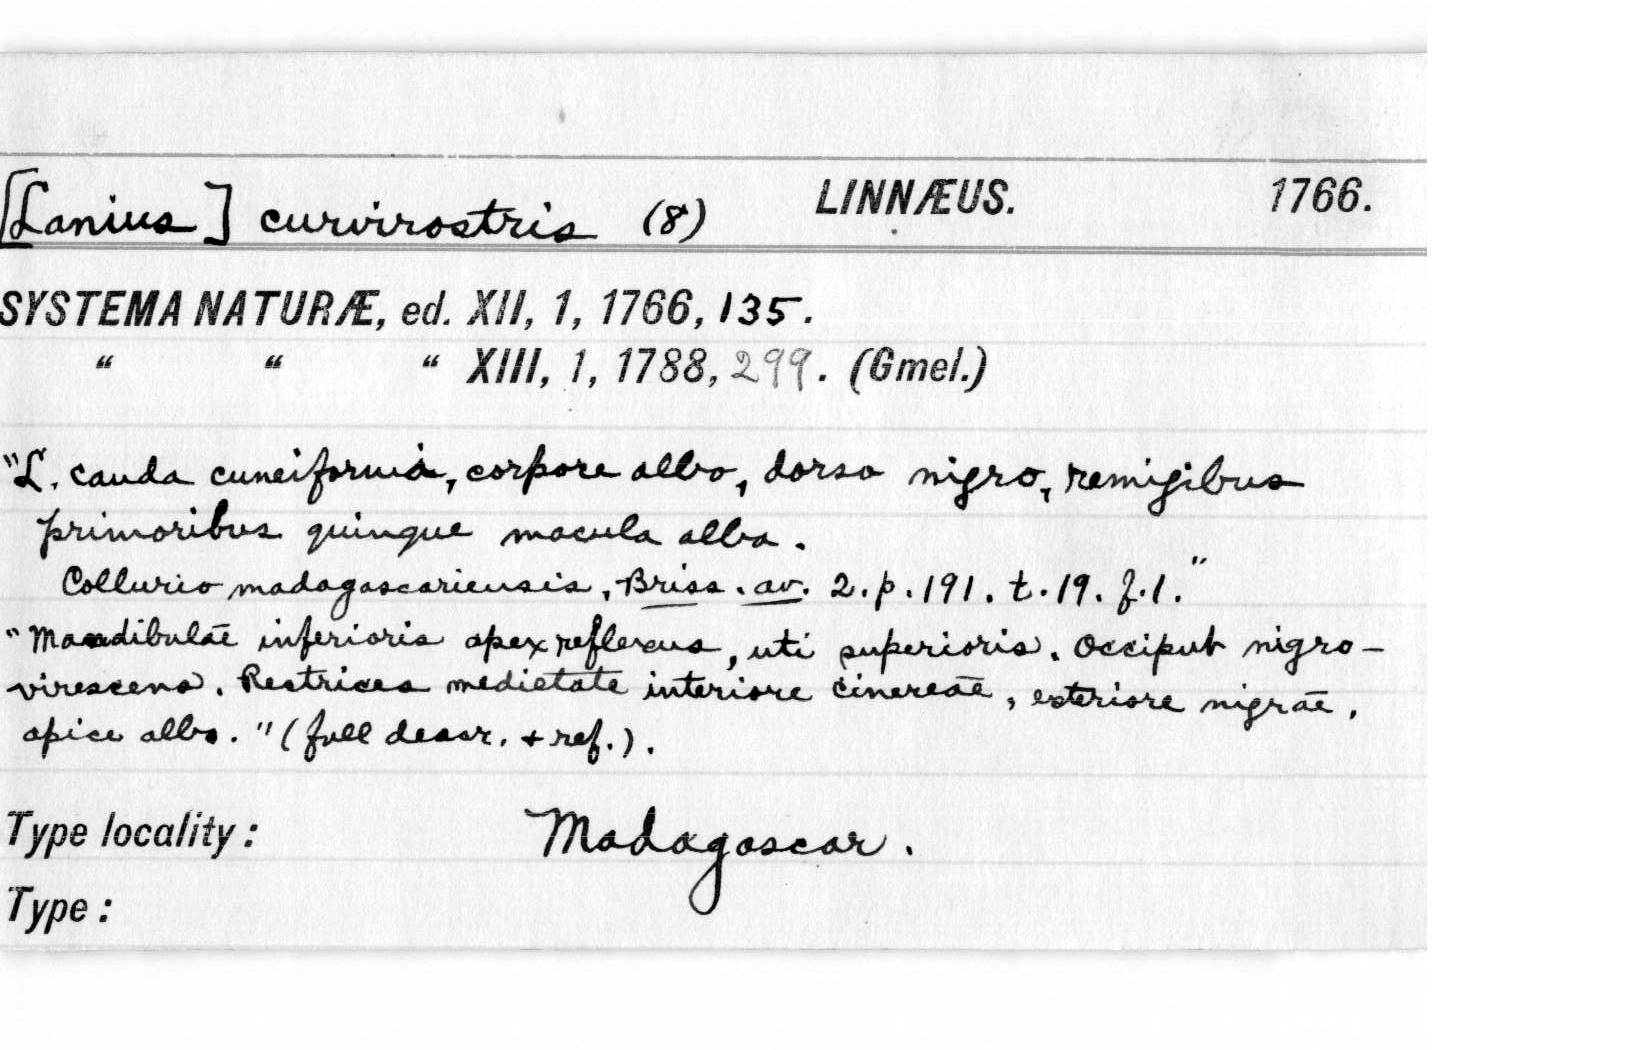 [Lanius] curvirostris (8) LINNÆUS. 1766.
SYSTEMA NATURÆ, ed. XII, 1, 1766, 135.
“ “ “ XIII, 1, 1788, 299. (Gmel.)
"L. cauda cuneiformi, corpore albo, dorso nigro, remigibus
primoribus quinque macula alba.
Collurio madagascariensis, Briss. av. 2. p. 191. t. 19. f. 1."
"Mandibulae inferioris apex reflexus, uti superioris. Occiput nigro-
virescens. Rectrices medietate interiore cinereae, exteriore nigrae,
apice albo." (full descr. + ref.).
Type locality: Madagascar.
Type: